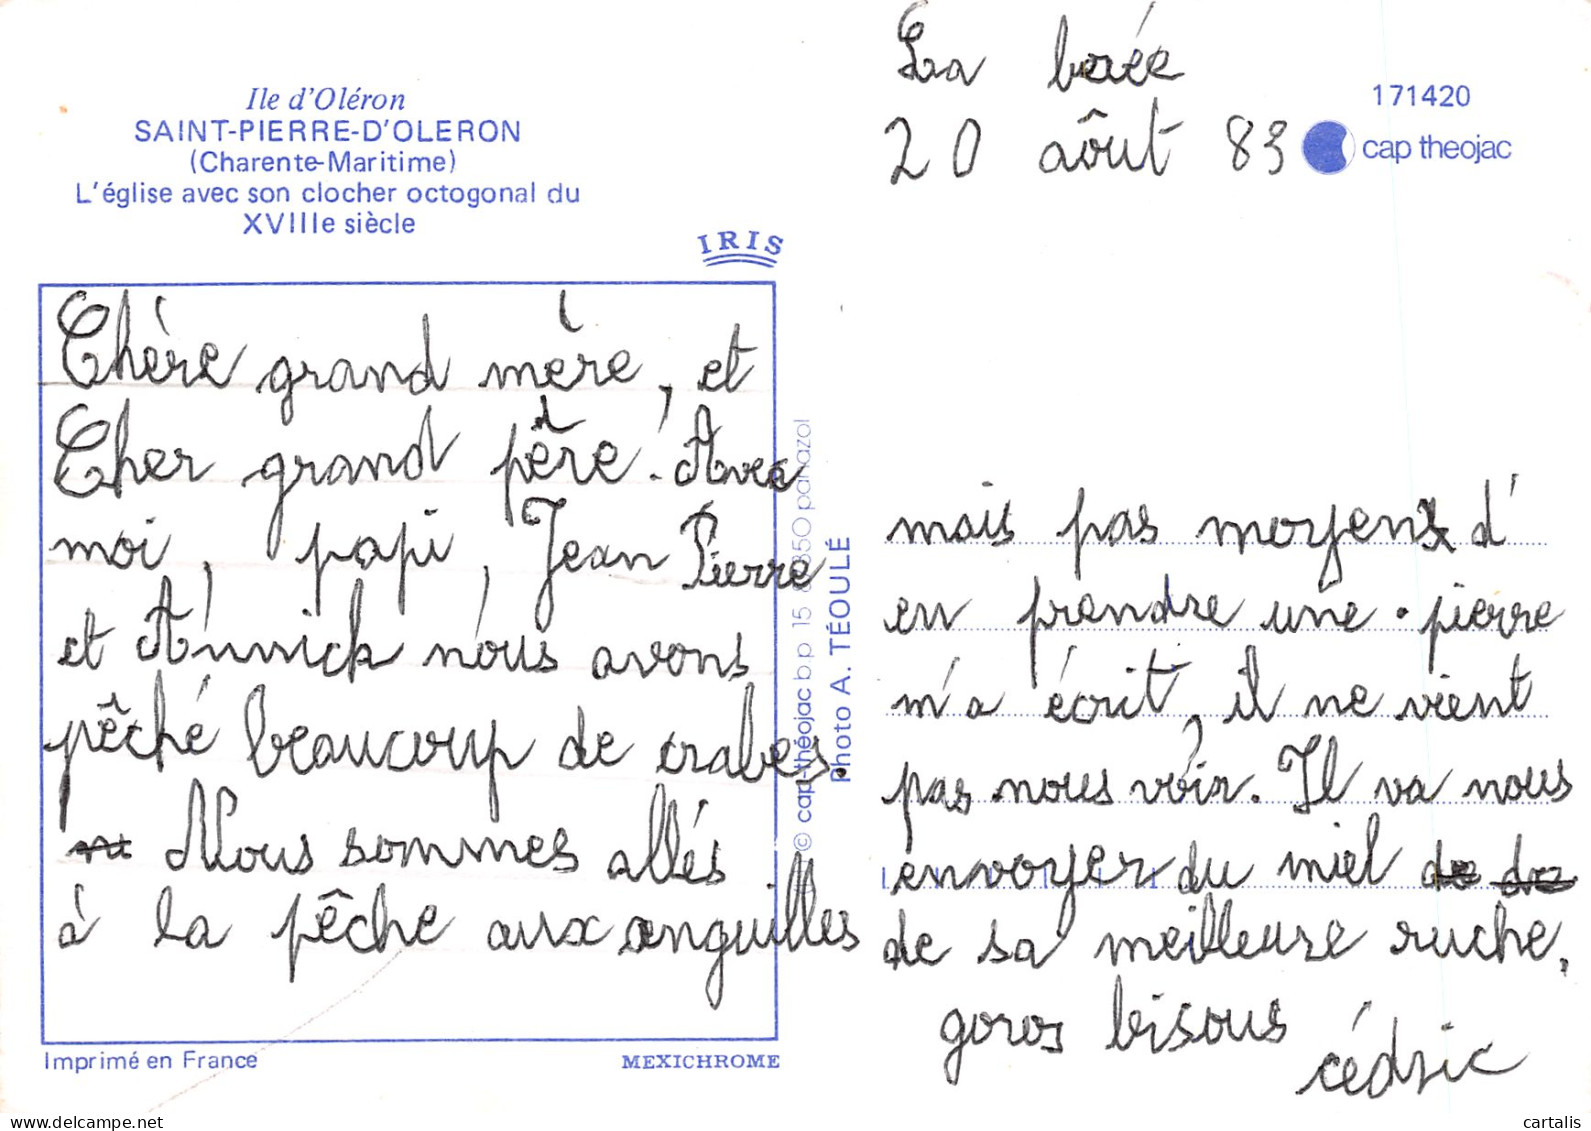 Ile d'Oléron
SAINT-PIERRE-D'OLERON
(Charente-Maritime)
L'église avec son clocher octogonal du
XVIIIe siècle
IRIS
Chère grand mère, et
Cher grand père. Avec
moi, papi, Jean Pierre
et Annick nous avons
pêché beaucoup de crabes.
Nous sommes allés
à la pêche aux anguilles
Imprimé en France
MEXICHROME
© cap-théojac b.p. 15 panazol
Photo A. TÉOULÉ
La
20 aôut 83
171420
cap theojac
mais pas moyen d'
en prendre une. pierre
m'a écrit, il ne vient
pas nous voir. Il va nous
envoyer du miel
de sa meilleure ruche,
goros bisous
cédric
cartalis